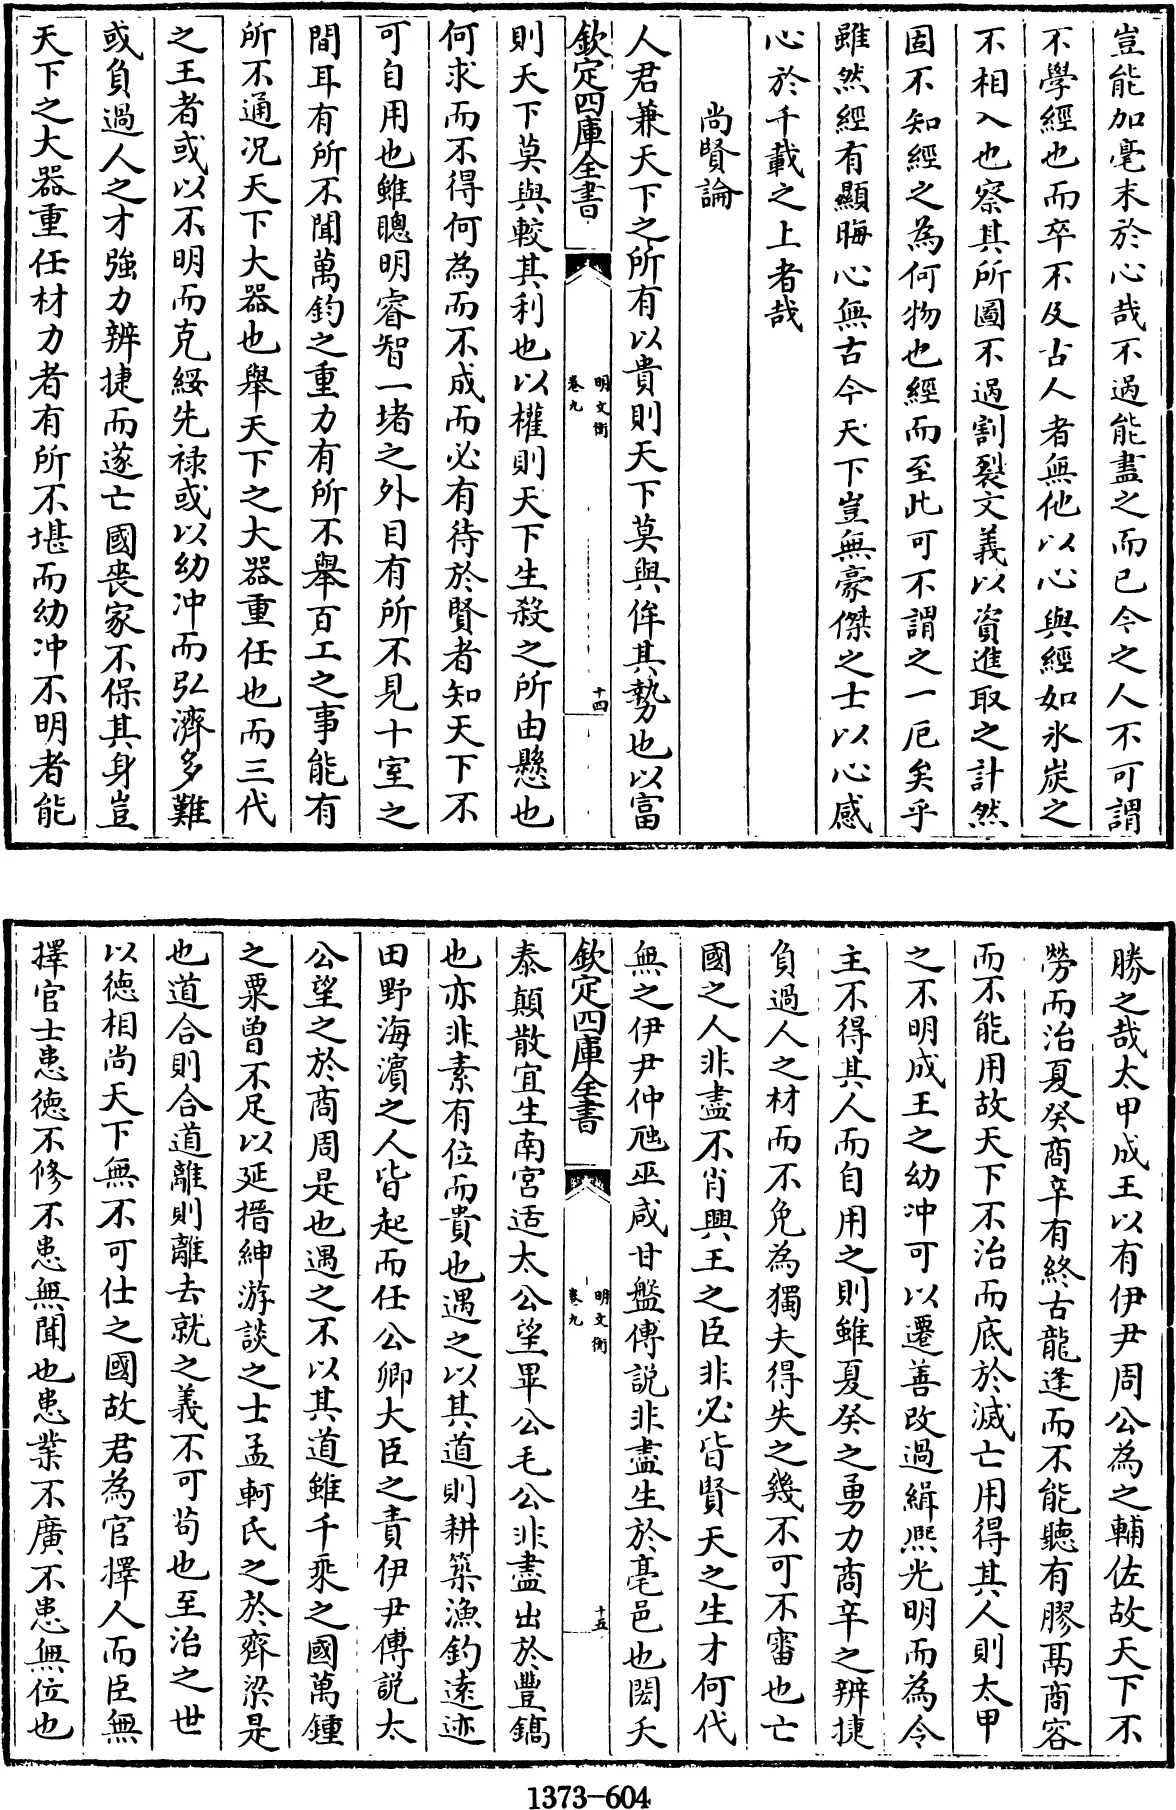 豈能加毫末於心哉不過能盡之而已今之人不可謂
不學經也而卒不及古人者無他以心與經如氷炭之
不相入也察其所圖不過割裂文義以資進取之計然
固不知經之為何物也經而至此可不謂之一厄矣乎
雖然經有顯晦心無古今天下豈無豪傑之士以心感
心於千載之上者哉
尚賢論
人君兼天下之所有以貴則天下莫與侔其勢也以富
欽定四庫全書
明文衡
卷九
十四
則天下莫與較其利也以權則天下生殺之所由懸也
何求而不得何為而不成而必有待於賢者知天下不
可自用也雖聰明睿智一堵之外目有所不見十室之
間耳有所不聞萬鈞之重力有所不舉百工之事能有
所不通況天下大器也舉天下之大器重任也而三代
之王者或以不明而克綏先祿或以幼冲而弘濟多難
或負過人之才強力辨捷而遂亡國喪家不保其身豈
天下之大器重任材力者有所不堪而幼冲不明者能
勝之哉太甲成王以有伊尹周公為之輔佐故天下不
勞而治夏癸商辛有終古龍逢而不能聽有膠鬲商容
而不能用故天下不治而底於滅亡用得其人則太甲
之不明成王之幼冲可以遷善改過緝熙光明而為令
主不得其人而自用之則雖夏癸之勇力商辛之辨捷
負過人之材而不免為獨夫得失之幾不可不審也亡
國之人非盡不肖興王之臣非必皆賢天之生才何代
無之伊尹仲虺巫咸甘盤傅説非盡生於亳邑也閎夭
欽定四庫全書
明文衡
卷九
十五
泰顛散宜生南宮适太公望畢公毛公非盡出於豐鎬
也亦非素有位而貴也遇之以其道則耕築漁釣遠迹
田野海濱之人皆起而任公卿大臣之責伊尹傅説太
公望之於商周是也遇之不以其道雖千乘之國萬鍾
之粟曾不足以延搢紳游談之士孟軻氏之於齊梁是
也道合則合道離則離去就之義不可苟也至治之世
以徳相尚天下無不可仕之國故君為官擇人而臣無
擇官士患徳不修不患無聞也患業不廣不患無位也
1373-604